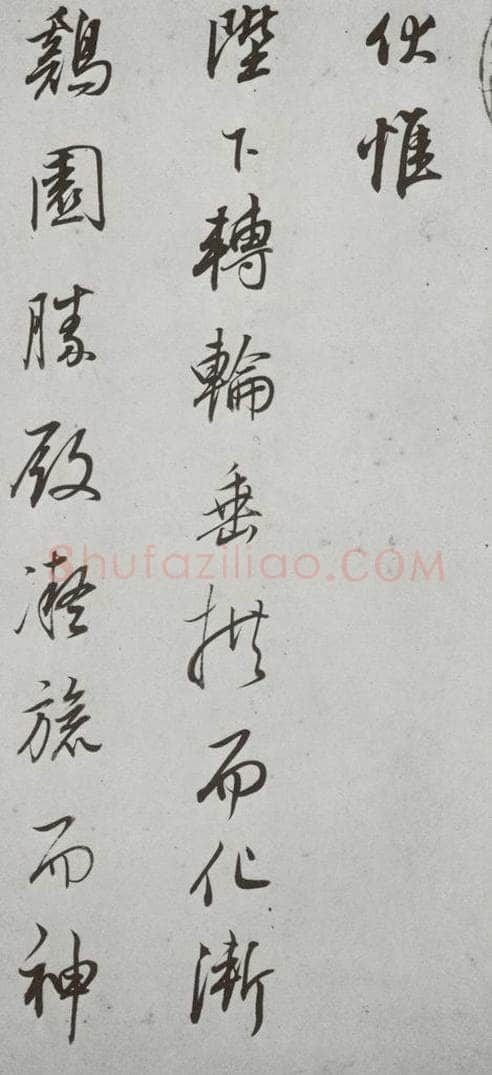 伏惟
陛下轉輪垂拱而化漸
鷄園勝殿凝旒而神
Shufaziliao.COM